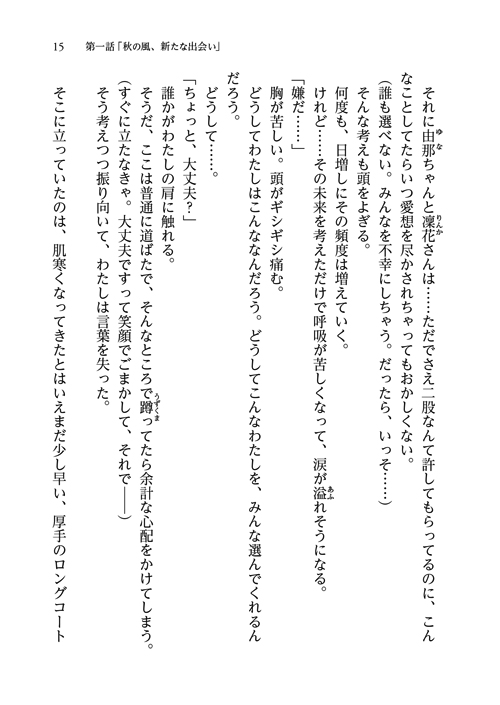 15　第一話「秋の風、新たな出会い」
それに由那ちゃんと凜花さんは……ただでさえ二股なんて許してもらってるのに、こん
ゆな
りんか
なことしてたらいつ愛想を尽かされちゃってもおかしくない。
（誰も選べない。みんなを不幸にしちゃう。だったら、いっそ……）
そんな考えも頭をよぎる。
何度も、日増しにその頻度は増えていく。
けれど……その未来を考えただけで呼吸が苦しくなって、涙が溢れそうになる。
あふ
「嫌だ……」
胸が苦しい。頭がギシギシ痛む。
どうしてわたしはこんななんだろう。どうしてこんなわたしを、みんな選んでくれるん
だろう。
どうして……。
「ちょっと、大丈夫？」
誰かがわたしの肩に触れる。
そうだ、ここは普通に道ばたで、そんなところで蹲ってたら余計な心配をかけてしまう。
うずくま
（すぐに立たなきゃ。大丈夫ですって笑顔でごまかして、それで――）
そう考えつつ振り向いて、わたしは言葉を失った。
そこに立っていたのは、肌寒くなってきたとはいえまだ少し早い、厚手のロングコート